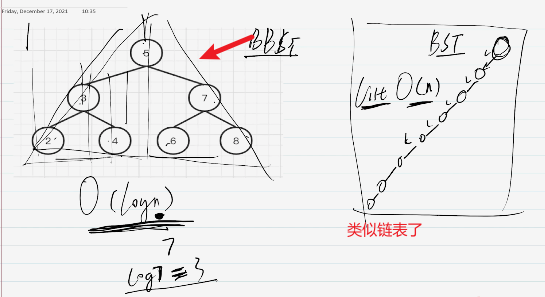 Friday, December 17, 2021 10:35
BBST
5
3
7
2
4
6
8
O(logn)
7
log7 = 3
BST
List O(n)
L
L
L
L
L
类似链表了